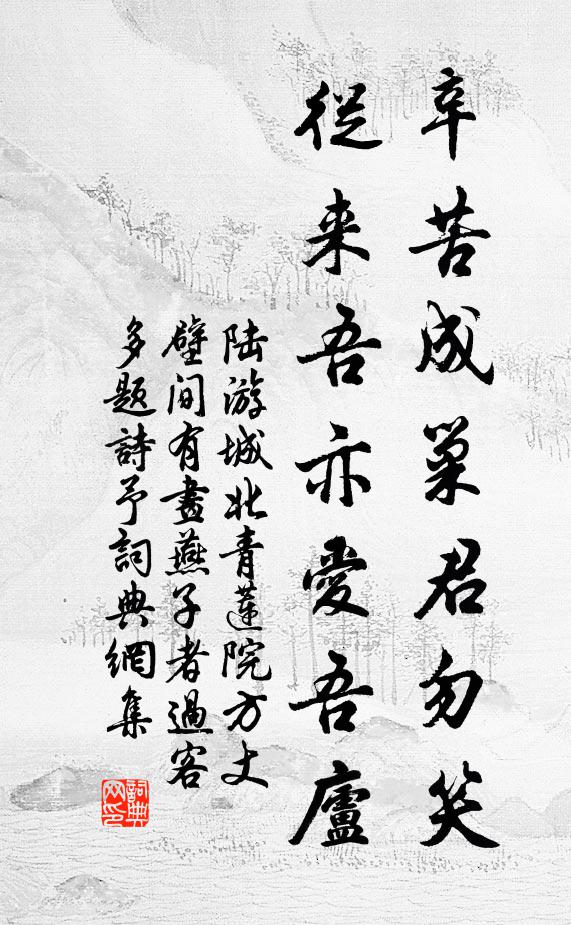 辛苦成巢君勿笑
從来吾亦愛吾廬
陆游城北青蓮院方丈
壁间有畫燕子者過客
多题詩予詞典網集
詞典
网印